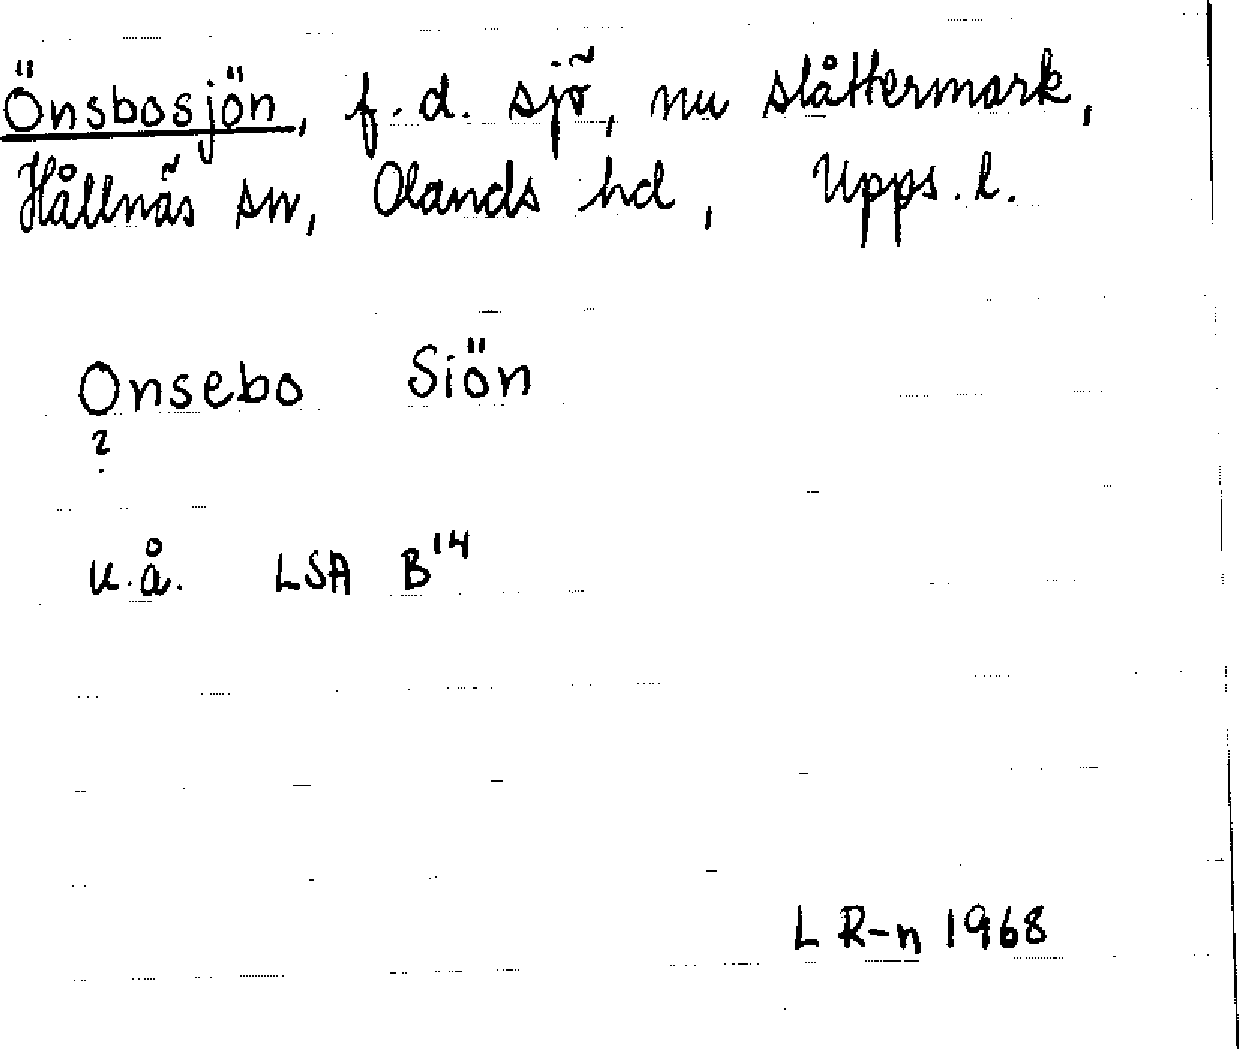 Önsbosjön, f.d. sjö, nu slåttermark,
Hållnäs sn, Olands hd, Upps. l.
Onsebo Siön
?
u.å. LSA B¹⁴
L R-n 1968